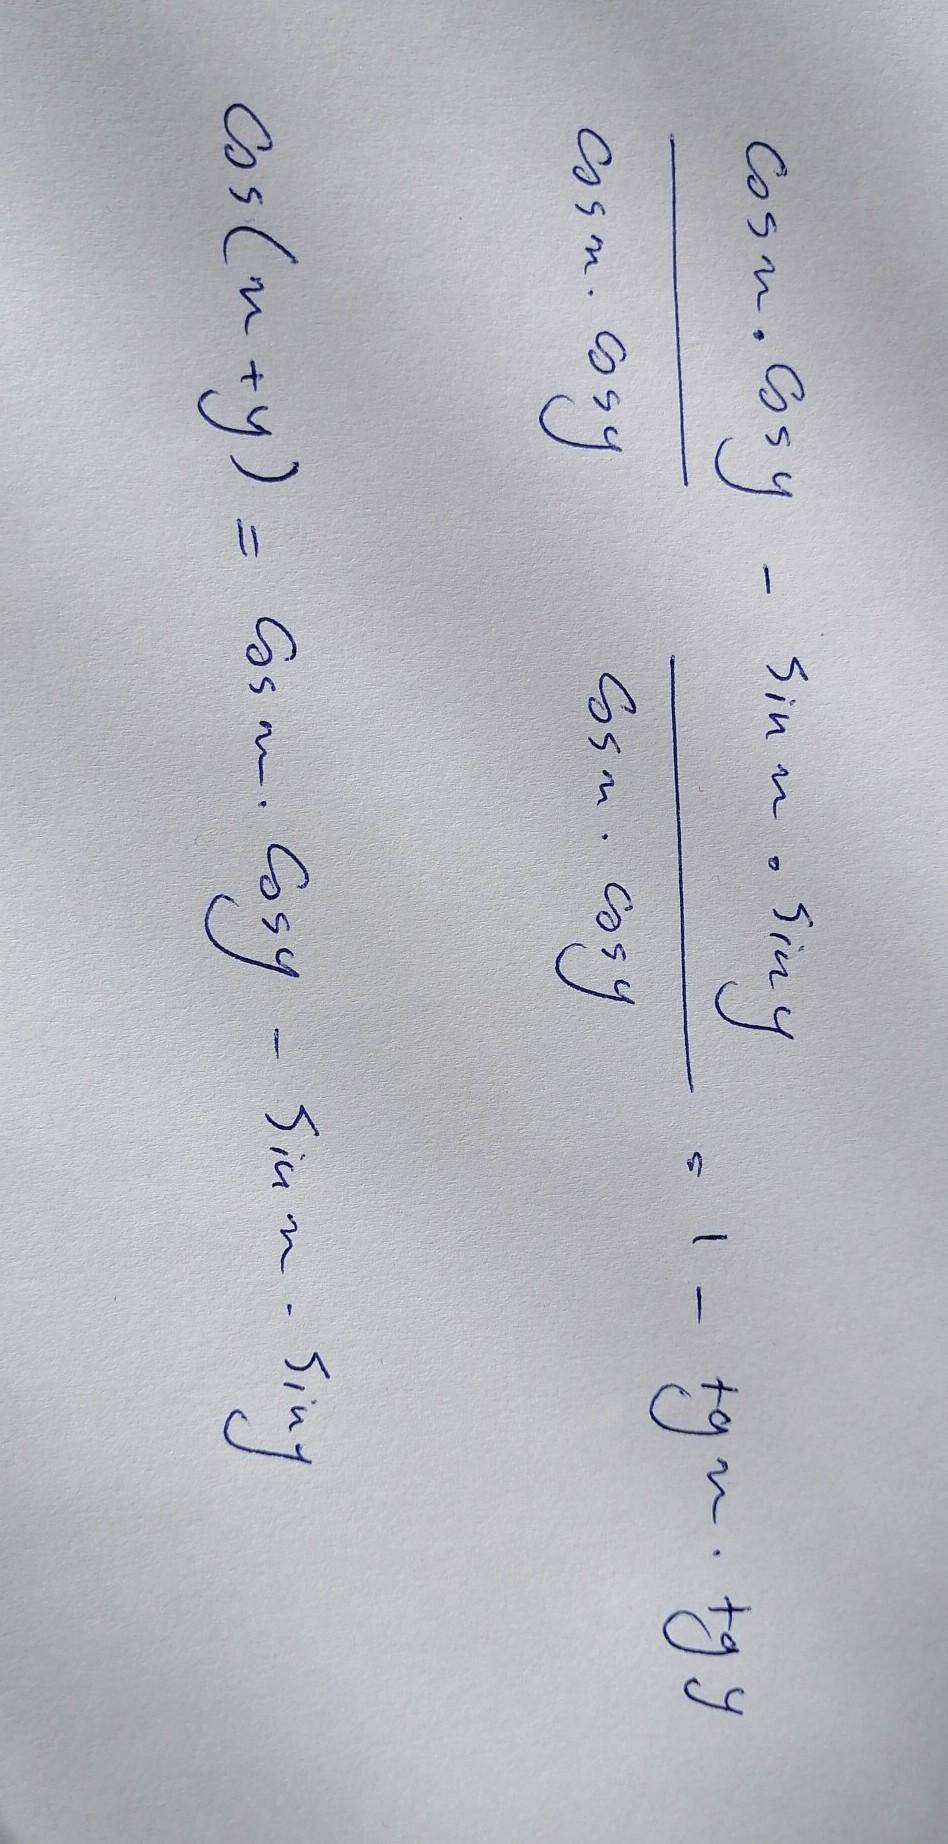 cosx · cosy / cosx · cosy - sinx · siny / cosx · cosy = 1 - tgx · tgy
cos(x+y) = cosx · cosy - sinx · siny